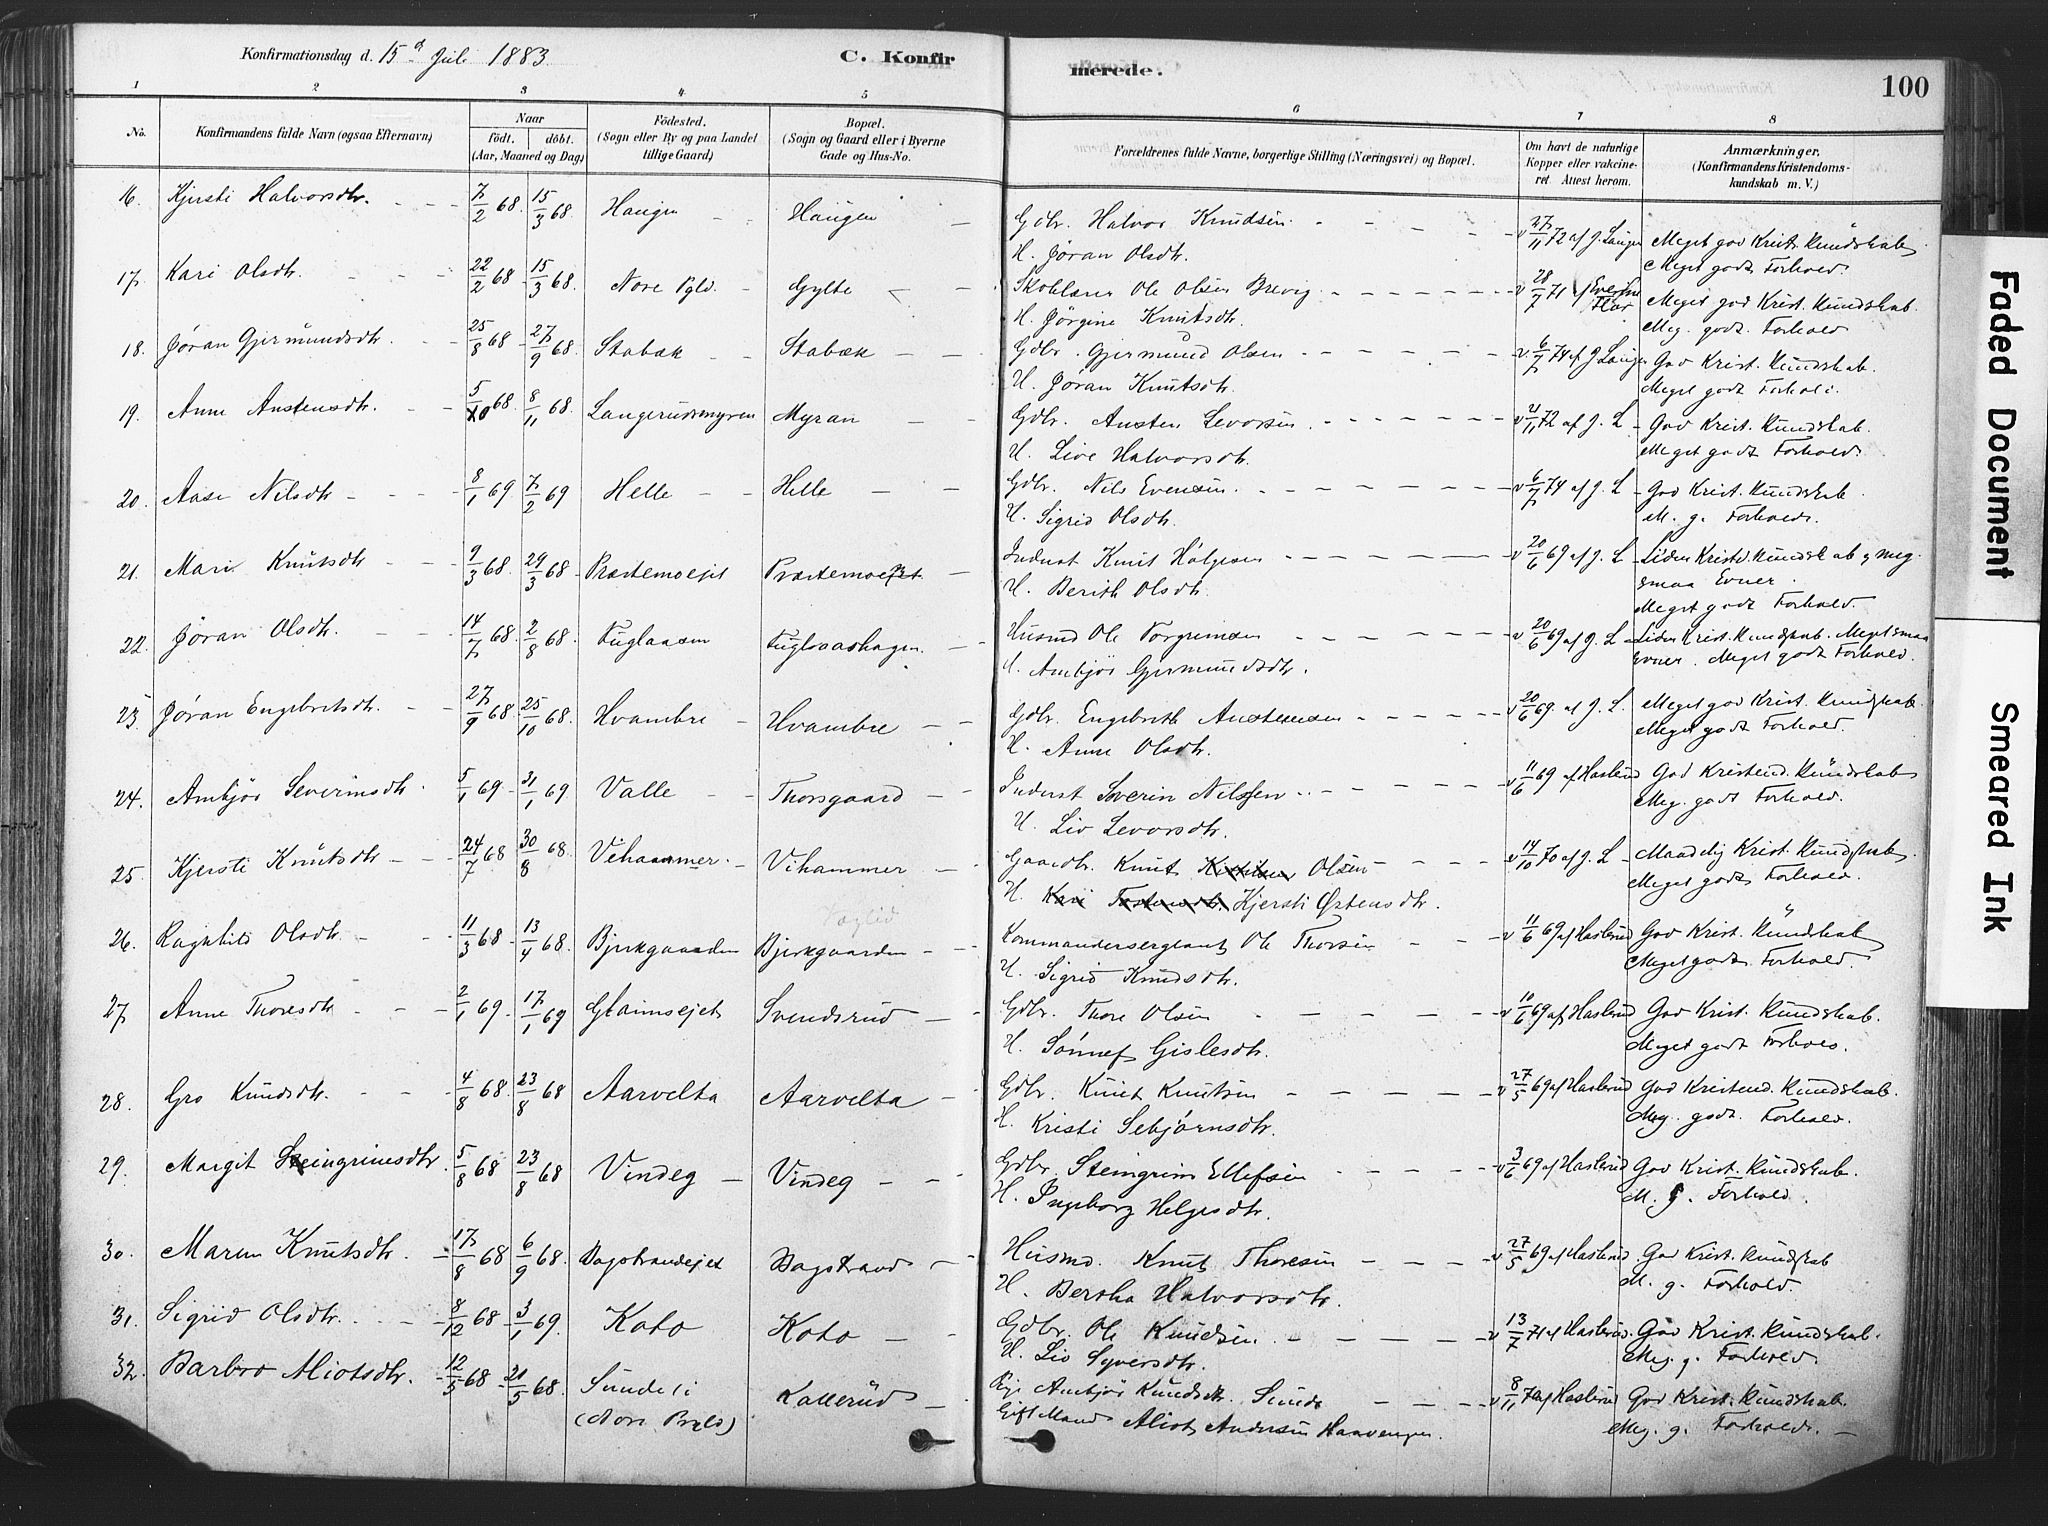 Konfirmationsdag d. 15d Juli 1883. C. Konfirmerede. 100
1 2 3 4 5 6 7 8
No. Konfirmandens fulde Navn (ogsaa Efternavn) Naar födt. döbt. (Aar, Maaned og Dag) Födested. (Sogn eller By og paa Landet tillige Gaard) Bopæl. (Sogn og Gaard eller i Byerne Gade og Hus-No. Forældrenes fulde Navne, borgerlige Stilling (Næringsvei) og Bopæl. Om havt de naturlige Kopper eller vakcineret. Attest herom. Anmærkninger. (Konfirmandens Kristendomskundskab m. V.)
16. Kjersti Halvorsdtr. 7/2 68 15/3 68 Haugen Haugen Gdbr. Halvor Knudsen v 27/11 72 af J. Langer Meget god Krist. Kundskab
H. Jöran Olsdtr. Meget godt Forhold.
17. Kari Olsdtr. 22/2 68 15/3 68. Nore Pgld. Gylte Skolelærer Ole Olsen Brevig v 28/7 71 Meget god Krist. Kundskab.
H. Jörgine Knutsdtr. Meg. godt. Forhold
18. Jöran Gjermundsdtr. 25/8 68 27/9 68. Stabæk Stabæk Gdbr. Gjermund Olsen v. 6/7 74 af J Langer God Krist. Kundskab.
H. Jöran Knutsdtr. Meget godt Forhold.
19. Anne Austensdtr. 5/10 68. 8/11 68. Langerudsmyren Myran Gdbr. Austen Levorsen v 21/11 72 af J. L God Krist. Kundskab.
H. Live Halvorsdtr. Meget godt Forhold.
20. Aase Nilsdtr 8/1 69 7/2 69 Helle Helle Gdbr. Nils Evensen v 6/7 74 af J. L God Krist. Kundskab.
H. Sigrid Olsdtr. M. g. Forhold.
21. Mari Knutsdtr 9/3 68. 29/3 68 Præstemoejet Præstemoejet Inderst Knut Helgesen v 20/6 69 af J. L Liden Kristd. Kundskab og meg
H. Berith Olsdtr. smaa Evner.
Meget godt Forhold.
22. Jöran Olsdtr. 14/7 68. 2/8 68. Fuglaasen Fuglaashagen Husmd Ole Torgrimsen v 20/6 69 af J. L Liden Krist. Kundskab. Meget smaa
H. Ambjör Gjermundsdtr. Evner. Meget godt Forhold.
23 Jöran Engebretsdtr. 27/9 68. 25/10 68. Hvambre Hvambre Gdbr. Engebreth Austensen v 20/6 69. af J. L. Meget god Krist. Kundskab.
H. Anne Olsdtr. Meget godt Forhold.
24. Ambjör Severinsdtr. 5/1 69 31/1 69 Valle Thorsgaard Inderst Severin Nilssen v 11/6 69 af Haslerud God Kristend. Kundskab
H. Liv Levorsdtr. Meg. godt Forhold.
25. Kjersti Knutsdtr 24/7 68 30/8 68. Vihammer. Vihammer Gaardbr. Knut Olsen v 14/10 70 af J. L Maadelig Krist. Kundskab.
H. Kari Kjersti Östensdtr. Meget godt Forhold.
26. Ragnhild Olsdtr. 11/3 68 13/4 68. Bjerkgaarden Bjerkgaarden Kommandersergeant Ole Thorsen v 11/6 69 af Haslerud God Krist. Kundskab
H. Sigrid Knudsdtr. Meget godt Forhold.
27 Anne Thoresdtr 2/1 69 17/1 69 Glaimsejet Svendsrud Gdbr. Thore Olsen v 10/6 69 af Haslerud God Krist. Kundskab.
H. Sönnef Gislesdtr. Meget godt Forhold.
28. Gro Knudsdtr. 4/8 68. 23/8 68 Aarvelta Aarvelta Gdbr. Knut Knutsen v 27/5 69 af Haslerud God Kristend. Kundskab.
H. Kristi Sebjörnsdtr. Meg. godt. Forhold.
29. Margit Steingrimsdtr. 5/8 68 23/8 68 Vindeg Vindeg Gdbr. Steingrim Ellefsen v 3/6 69 af Haslerud God Krist. Kundskab.
H. Ingeborg Helgesdtr. M. g. Forhold.
30. Maren Knutsdtr. 17/8 68 6/9 68. Dagstrandejet Dagstrand Husmd. Knut Thoresen v 27/5 69 af Haslerud. God Krist. Kundskab
H. Bertha Halvorsdtr. M. g. Forhold.
31. Sigrid Olsdtr. 8/12 68 3/1 69. Koto Koto Gdbr. Ole Knudsen v 13/7 71 af Haslerud. God Krist. Kundskab.
H. Liv Syversdtr. Meg. g. Forhold
32. Barbro Aliotsdtr. 12/5 68 21/5 68. Sunde i Kallerud Pige Ambjör Knudsdtr. Sunde v 8/11 70 af Haslerud God Krist. Kundskab.
(Nore Prgld) Gift Mand Aliot Andersen Haavengen. Meg. g. Forhold.
Faded Document
Smeared Ink